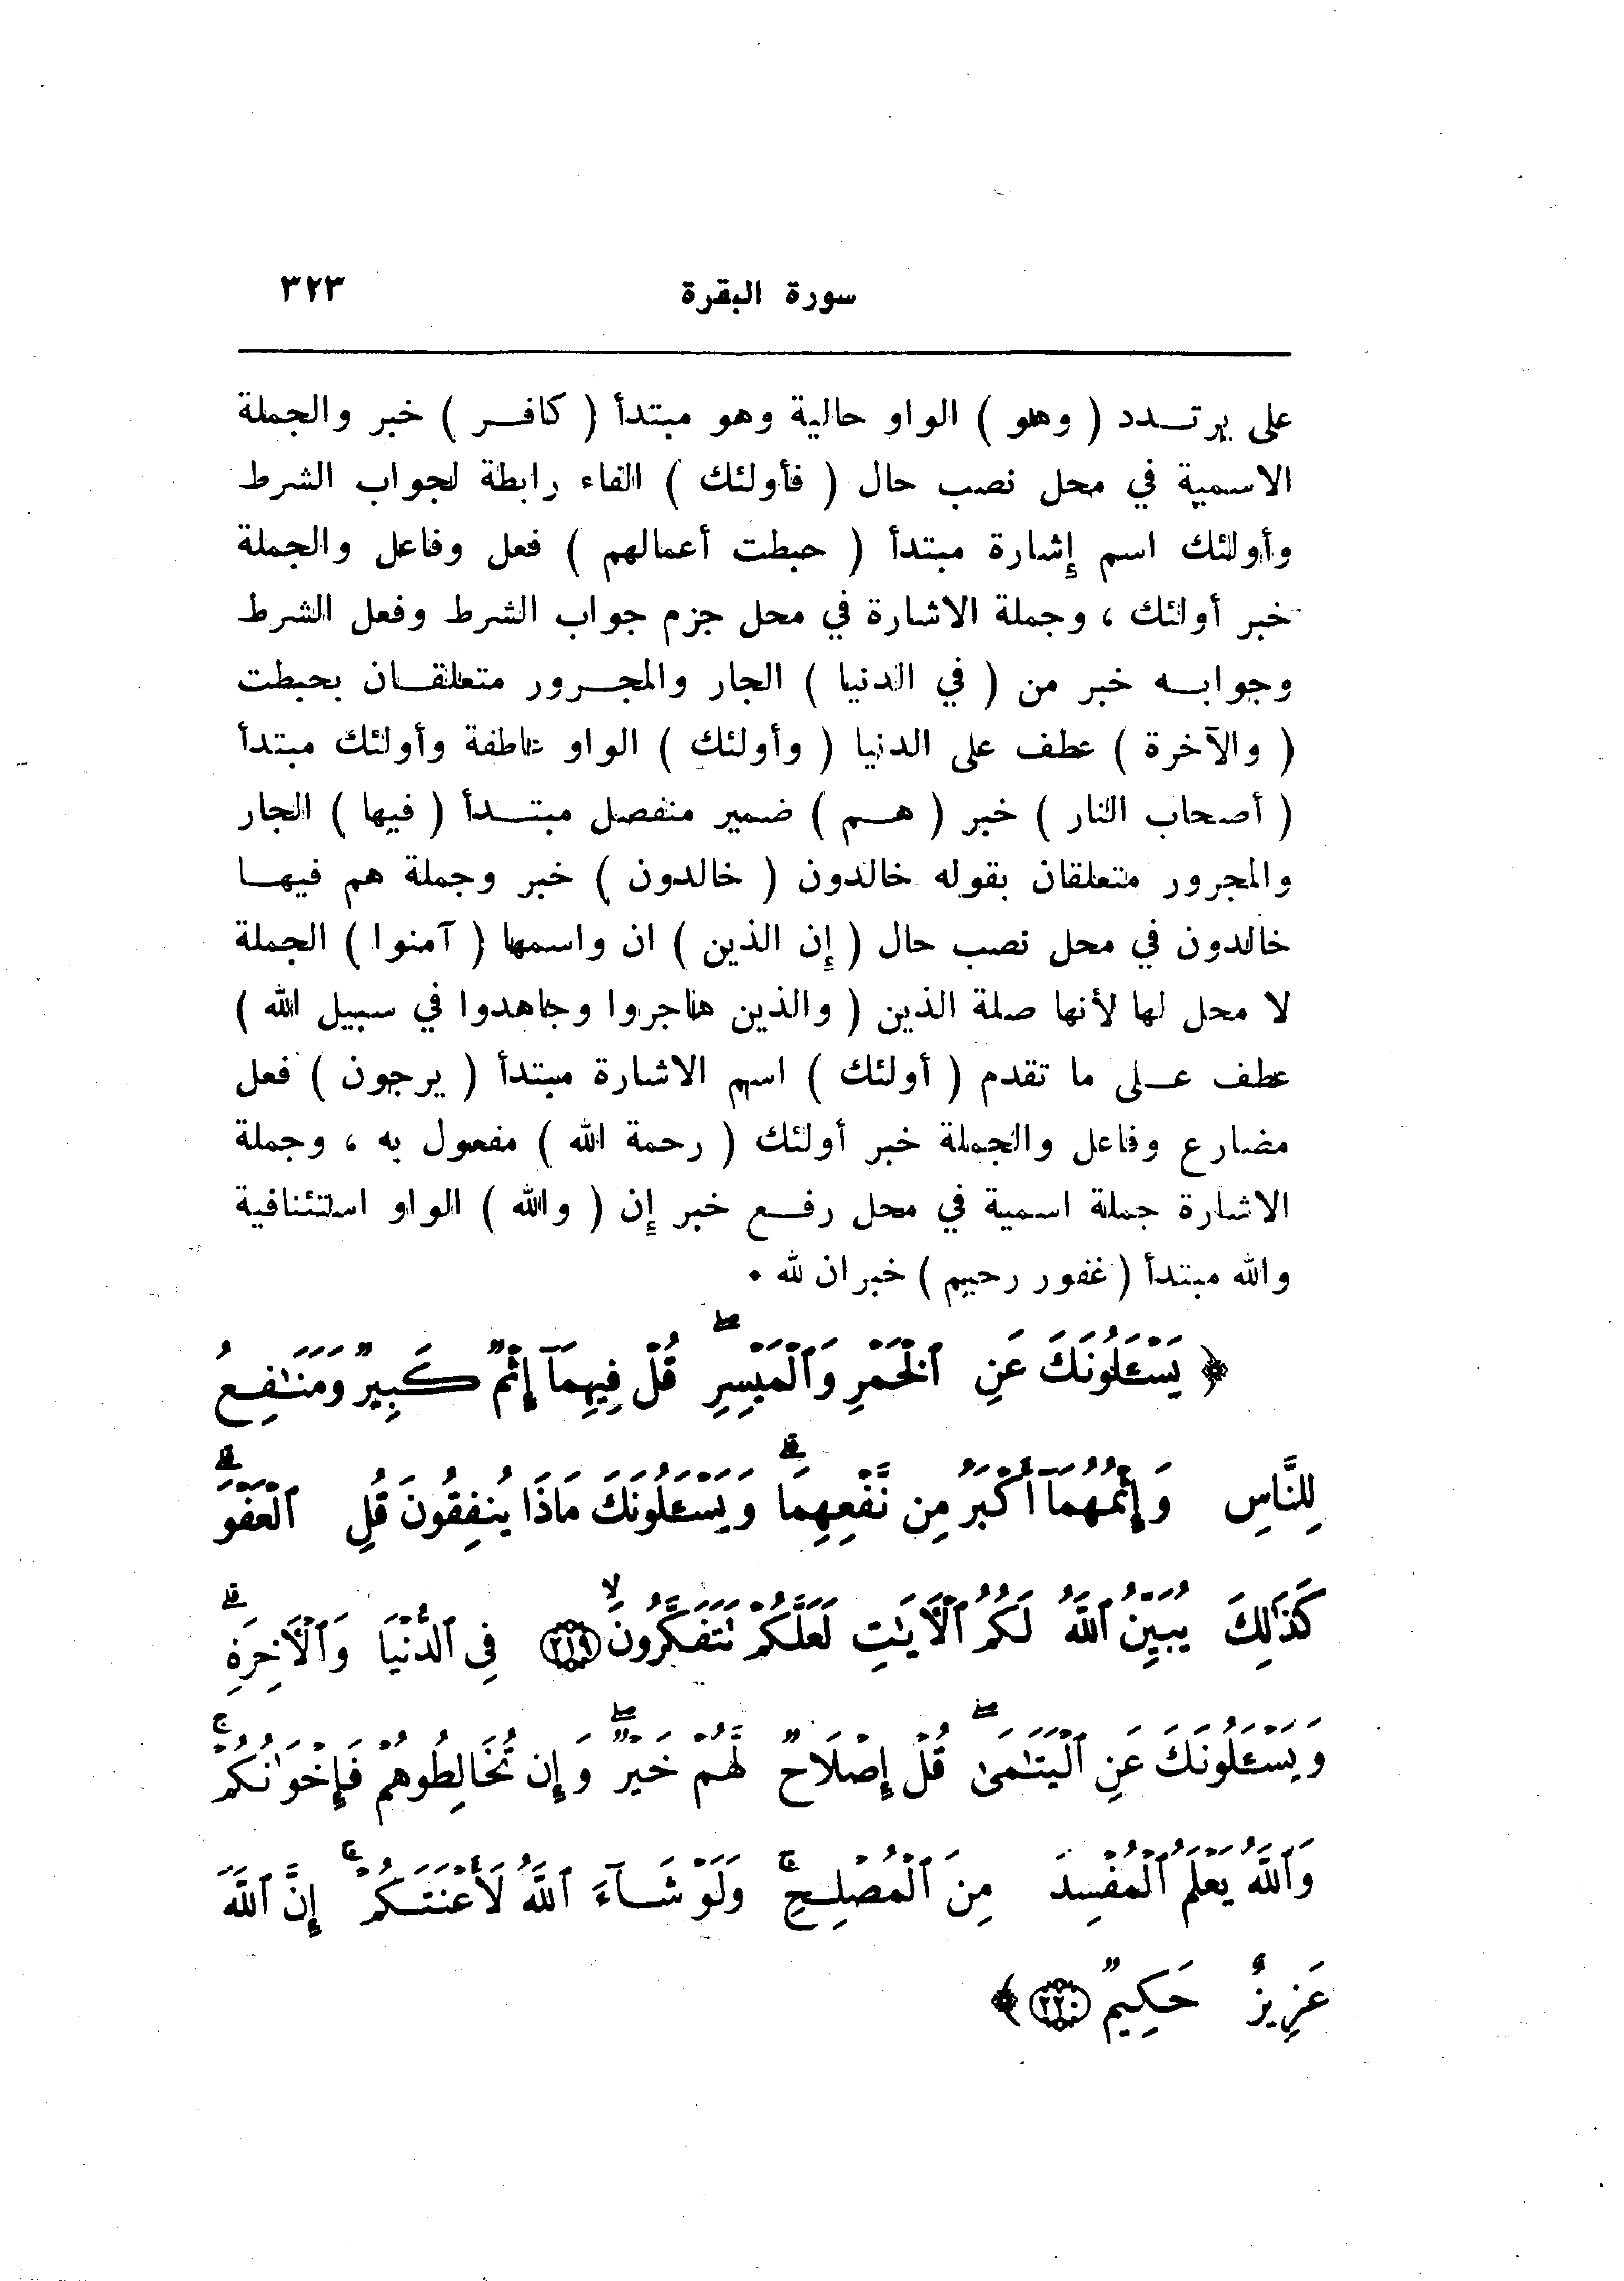 سورة البقرة ٣٢٣
على يرتدد ( وهو ) الواو حالية وهو مبتدأ ( كافر ) خبر والجملة
الاسمية في محل نصب حال ( فأولئك ) الفاء رابطة لجواب الشرط
وأولئك اسم إشارة مبتدأ ( حبطت أعمالهم ) فعل وفاعل والجملة
خبر أولئك ، وجملة الاشارة في محل جزم جواب الشرط وفعل الشرط
وجوابه خبر من ( في الدنيا ) الجار والمجرور متعلقان بحبطت
( والآخرة ) عطف على الدنيا ( وأولئك ) الواو عاطفة وأولئك مبتدأ
( أصحاب النار ) خبر ( هم ) ضمير منفصل مبتدأ ( فيها ) الجار
والمجرور متعلقان بقوله خالدون ( خالدون ) خبر وجملة هم فيها
خالدون في محل نصب حال ( إن الذين ) ان واسمها ( آمنوا ) الجملة
لا محل لها لأنها صلة الذين ( والذين هاجروا وجاهدوا في سبيل الله )
عطف على ما تقدم ( أولئك ) اسم الاشارة مبتدأ ( يرجون ) فعل
مضارع وفاعل والجملة خبر أولئك ( رحمة الله ) مفعول به ، وجملة
الاشارة جملة اسمية في محل رفع خبر إن ( والله ) الواو استئنافية
والله مبتدأ ( غفور رحيم ) خبران لله ٠
﴿ يَسْـَٔلُونَكَ عَنِ ٱلْخَمْرِ وَٱلْمَيْسِرِ ۖ قُلْ فِيهِمَآ إِثْمٌ كَبِيرٌ وَمَنَـٰفِعُ
لِلنَّاسِ وَإِثْمُهُمَآ أَكْبَرُ مِن نَّفْعِهِمَا ۗ وَيَسْـَٔلُونَكَ مَاذَا يُنفِقُونَ قُلِ ٱلْعَفْوَ ۗ
كَذَٰلِكَ يُبَيِّنُ ٱللَّهُ لَكُمُ ٱلْأَيَـٰتِ لَعَلَّكُمْ تَتَفَكَّرُونَ ۙ ٢١٩ فِى ٱلدُّنْيَا وَٱلْأَخِرَةِ ۗ
وَيَسْـَٔلُونَكَ عَنِ ٱلْيَتَـٰمَىٰ ۖ قُلْ إِصْلَاحٌ لَّهُمْ خَيْرٌ ۖ وَإِن تُخَالِطُوهُمْ فَإِخْوَٰنُكُمْ ۚ
وَٱللَّهُ يَعْلَمُ ٱلْمُفْسِدَ مِنَ ٱلْمُصْلِحِ ۚ وَلَوْ شَآءَ ٱللَّهُ لَأَعْنَتَكُمْ ۚ إِنَّ ٱللَّهَ
عَزِيزٌ حَكِيمٌ ٢٢٠ ﴾